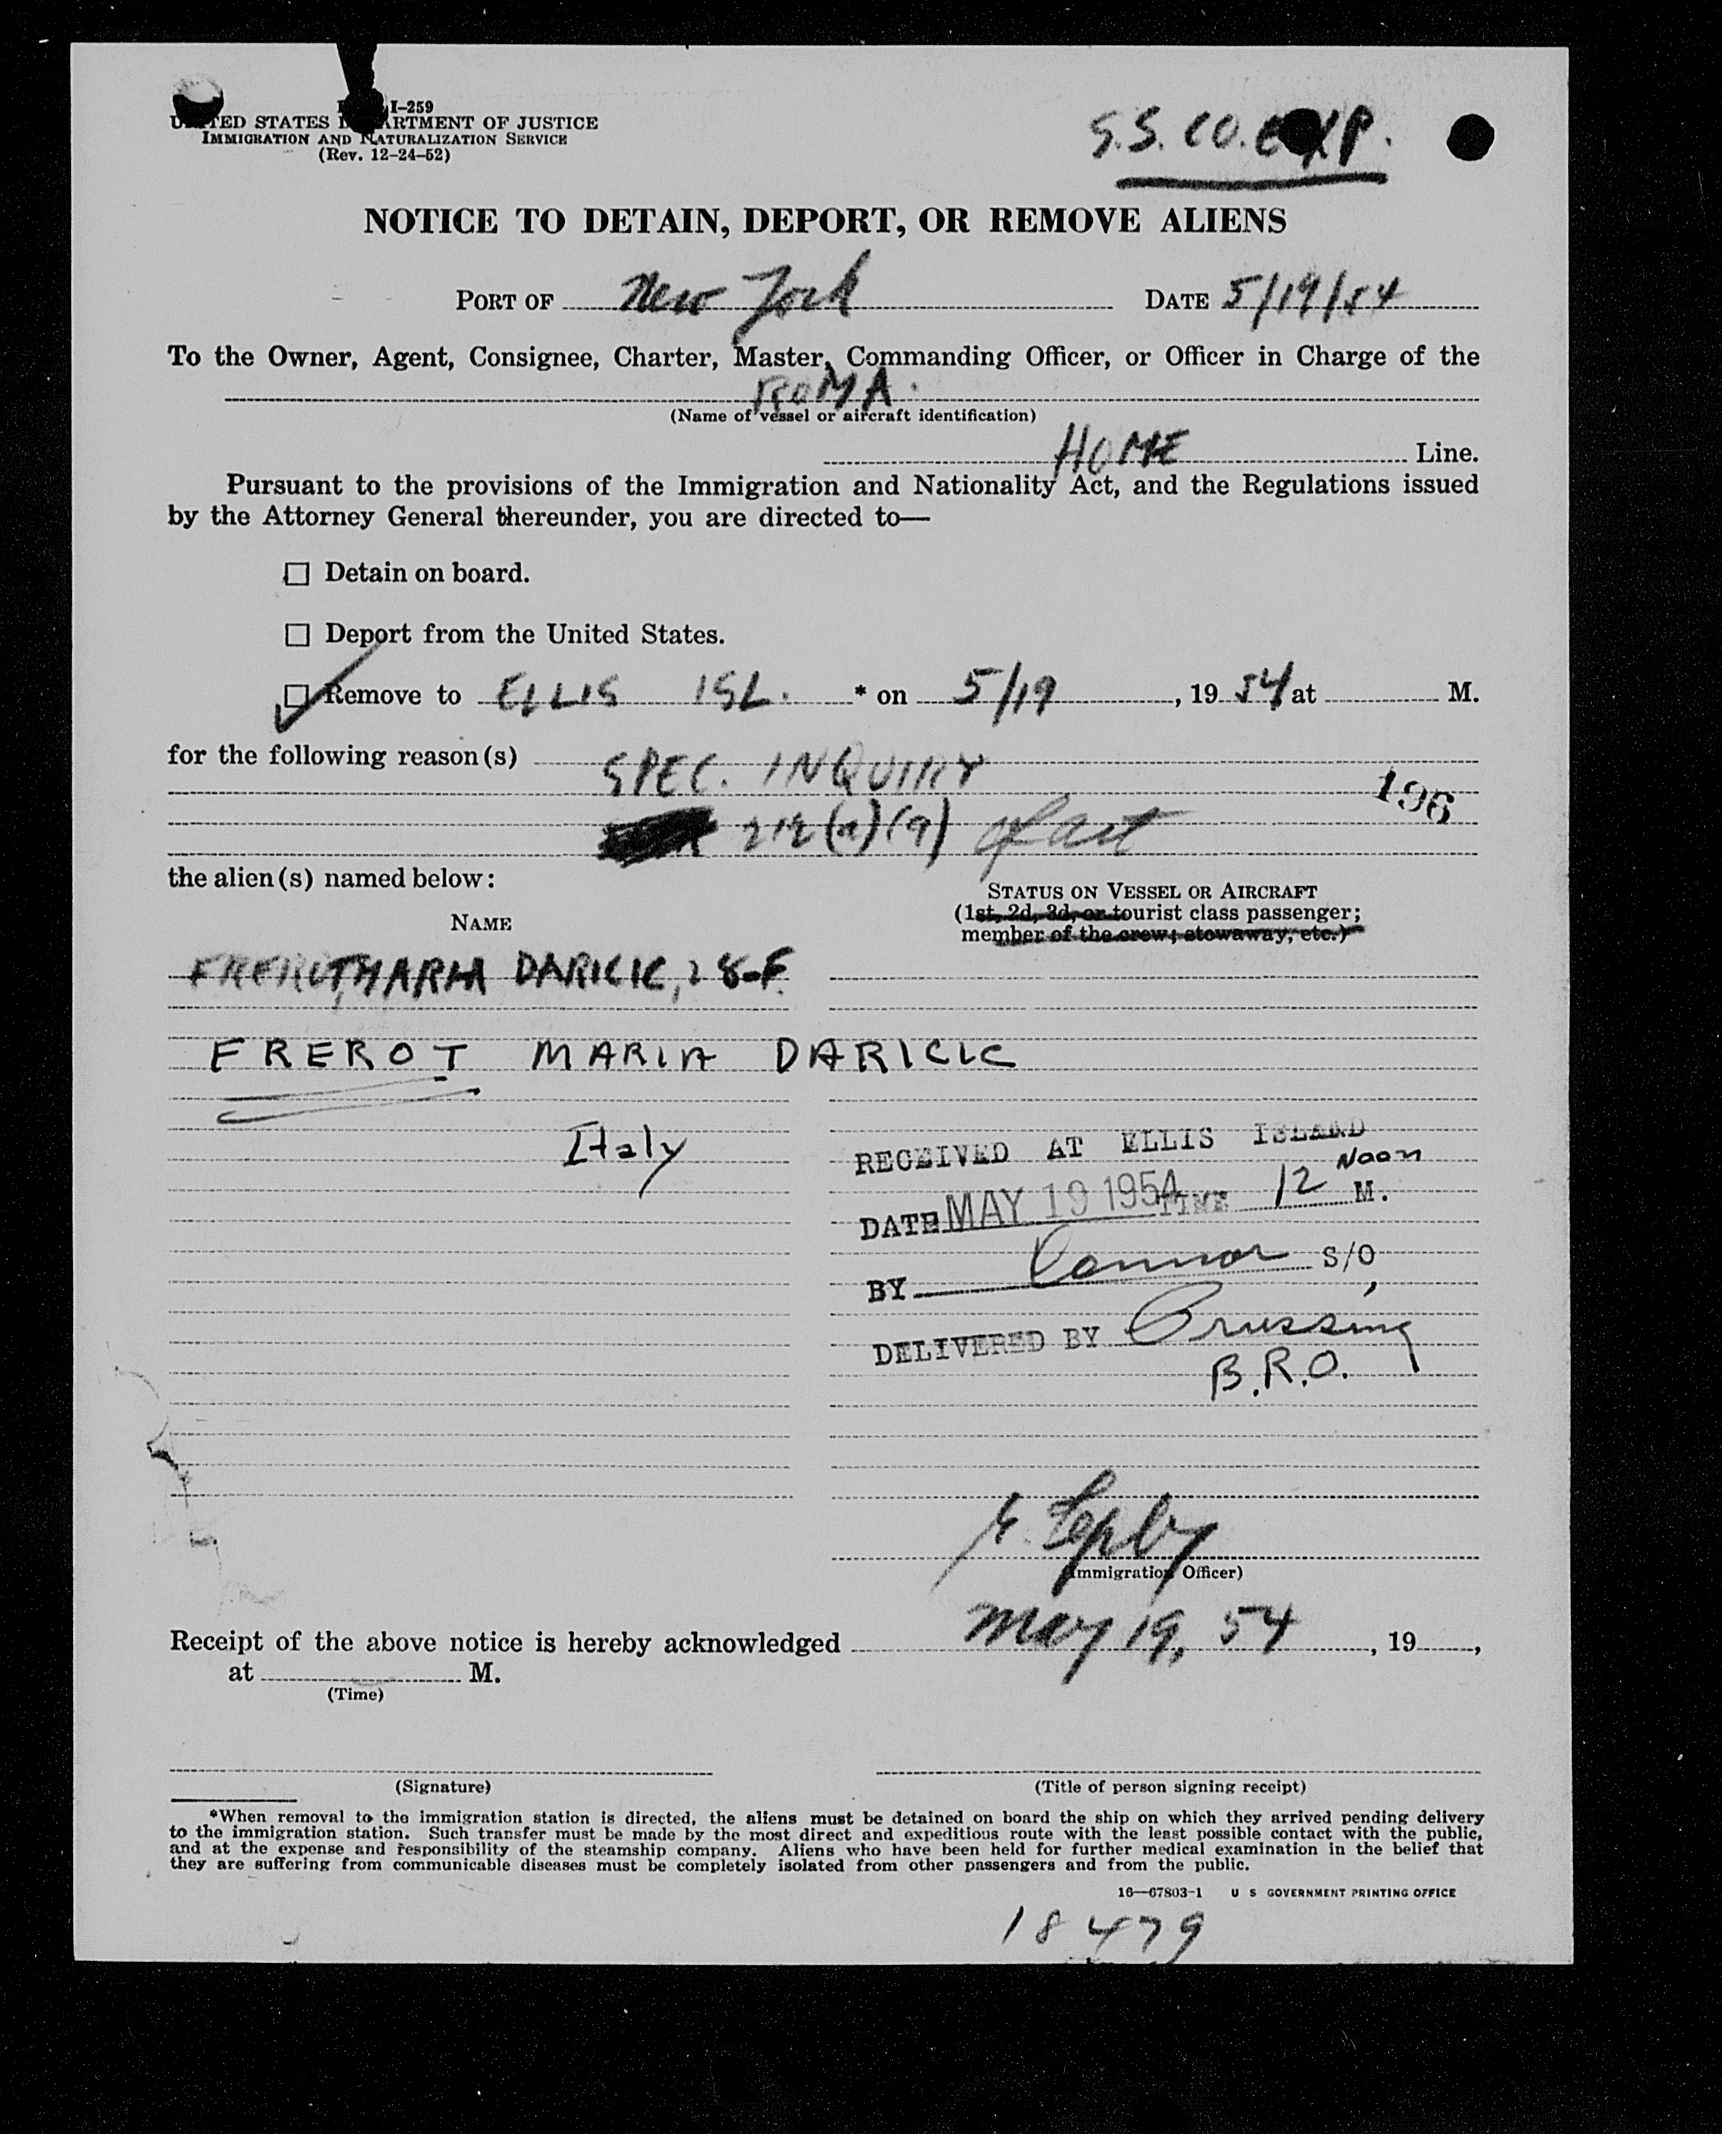 I-259
UNITED STATES DEPARTMENT OF JUSTICE
IMMIGRATION AND NATURALIZATION SERVICE
(Rev. 12-24-52)
S.S. CO. EXP.
NOTICE TO DETAIN, DEPORT, OR REMOVE ALIENS
PORT OF New York DATE 5/19/54
To the Owner, Agent, Consignee, Charter, Master, Commanding Officer, or Officer in Charge of the
ROMA
(Name of vessel or aircraft identification)
HOME Line.
Pursuant to the provisions of the Immigration and Nationality Act, and the Regulations issued
by the Attorney General thereunder, you are directed to—
☐ Detain on board.
☐ Deport from the United States.
☑ Remove to ELLIS ISL. * on 5/19, 19 54 at M.
for the following reason(s) SPEC. INQUIRY
196
212(a)(9) of act
the alien(s) named below:
STATUS ON VESSEL OR AIRCRAFT
NAME
(1st, 2d, 3d, or tourist class passenger;
member of the crew; stowaway, etc.)
FREROT, MARIA DARICIC, 28-F.
FREROT MARIA DARICIC
Italy
RECEIVED AT ELLIS ISLAND
DATE MAY 19 1954 TIME 12 Noon M.
BY Connor S/O
DELIVERED BY Prussing
B.R.O.
(Immigration Officer)
Receipt of the above notice is hereby acknowledged May 19, 54, 19 ,
at M.
(Time)
(Signature)
(Title of person signing receipt)
*When removal to the immigration station is directed, the aliens must be detained on board the ship on which they arrived pending delivery
to the immigration station. Such transfer must be made by the most direct and expeditious route with the least possible contact with the public,
and at the expense and responsibility of the steamship company. Aliens who have been held for further medical examination in the belief that
they are suffering from communicable diseases must be completely isolated from other passengers and from the public.
16—67803-1 U S GOVERNMENT PRINTING OFFICE
18479